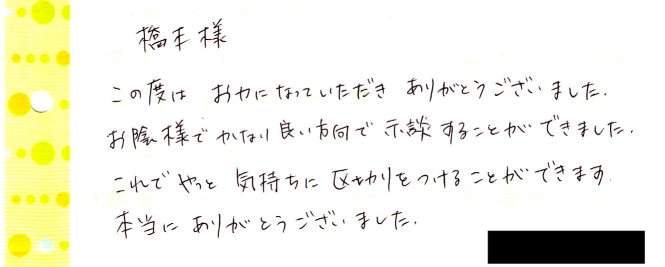 橋本様
この度は おカになっていただき ありがとうございました.
お陰様で かなり良い方向で 示談することができました.
これで やっと 気持ちに 区切りをつけることができます
本当に ありがとうございました.